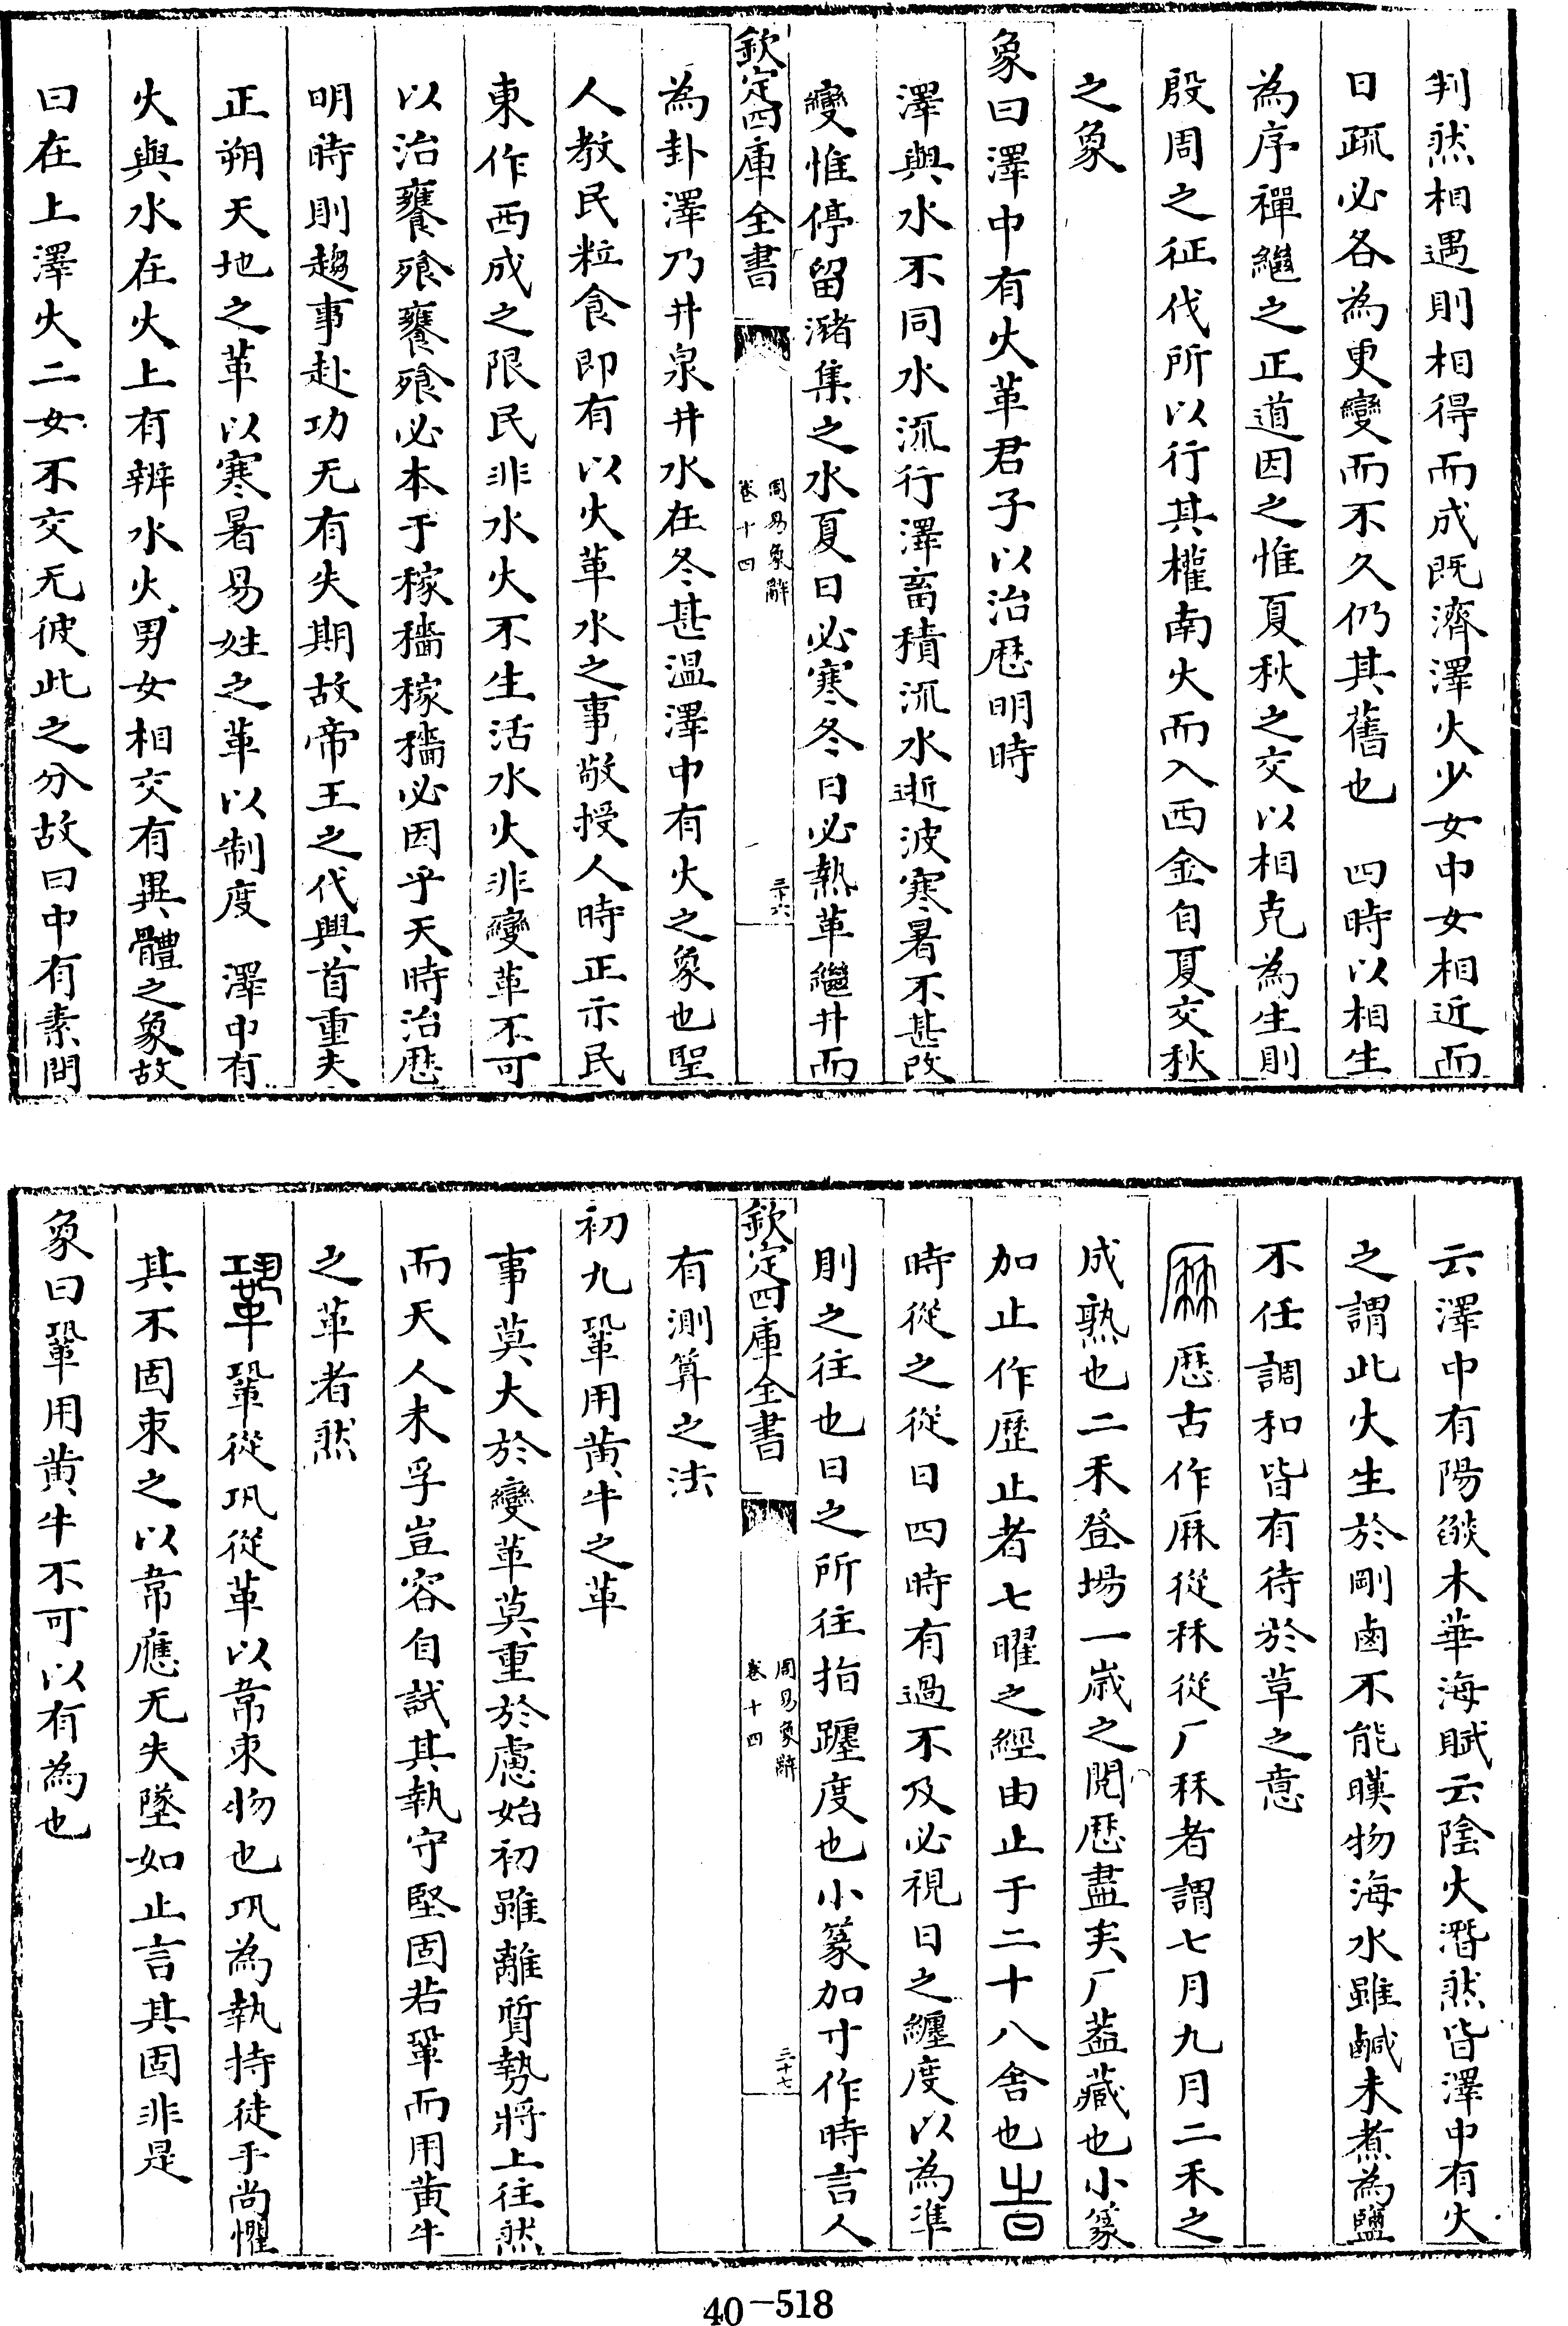 判然相遇則相得而成既濟澤火少女中女相近而
日疏必各為更變而不久仍其舊也　四時以相生
為序禪繼之正道因之惟夏秋之交以相克為生則
殷周之征伐所以行其權南火而入西金自夏交秋
之象
象曰澤中有火革君子以治厯明時
澤與水不同水流行澤畜積流水逝波寒暑不甚改
變惟停留瀦集之水夏日必寒冬日必熱革繼井而
欽定四庫全書
周易象辭
卷十四
三十六
為卦澤乃井泉井水在冬甚温澤中有火之象也聖
人教民粒食即有以火革水之事敬授人時正示民
東作西成之限民非水火不生活水火非變革不可
以治饔飱饔飱必本于稼穡稼穡必因乎天時治厯
明時則趨事赴功无有失期故帝王之代興首重夫
正朔天地之革以寒暑易姓之革以制度　澤中有
火與水在火上有辨水火男女相交有異體之象故
曰在上澤火二女不交无彼此之分故曰中有素問
云澤中有陽燄木華海賦云陰火潛然皆澤中有火
之謂此火生於剛鹵不能暵物海水雖鹹未煮為鹽
不任調和皆有待於草之意
厤厯古作厤從秝從厂秝者謂七月九月二禾之
成熟也二禾登場一歲之閱厯盡矣厂葢藏也小篆
加止作歷止者七曜之經由止于二十八舍也旹
時從之從日四時有過不及必視日之纏度以為準
則之往也日之所往指躔度也小篆加寸作時言人
欽定四庫全書
周易象辭
卷十四
三十七
有測算之法
初九鞏用黄牛之革
事莫大於變革莫重於慮始初雖離質勢將上往然
而天人未孚豈容自試其執守堅固若鞏而用黄牛
之革者然
鞏鞏從巩從革以韋束物也巩為執持徒手尚懼
其不固束之以韋應无失墜如止言其固非是
象曰鞏用黄牛不可以有為也
40-518